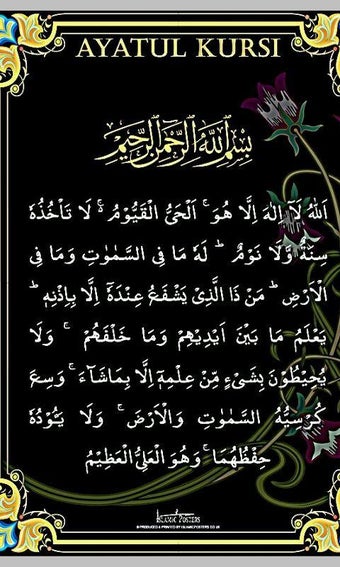 AYATUL KURSI
بِسْمِ اللّٰهِ الرَّحْمٰنِ الرَّحِيْمِ
اَللّٰهُ لَآ اِلٰهَ اِلَّا هُوَ ۚ اَلْحَيُّ الْقَيُّوْمُ ۬ۚ لَا تَاْخُذُهٗ
سِنَةٌ وَّلَا نَوْمٌ ؕ لَهٗ مَا فِى السَّمٰوٰتِ وَمَا فِى
الْاَرْضِ ؕ مَنْ ذَا الَّذِىْ يَشْفَعُ عِنْدَهٗٓ اِلَّا بِاِذْنِهٖ ؕ
يَعْلَمُ مَا بَيْنَ اَيْدِيْهِمْ وَمَا خَلْفَهُمْ ۚ وَلَا
يُحِيْطُوْنَ بِشَىْءٍ مِّنْ عِلْمِهٖٓ اِلَّا بِمَاشَآءَ ۚ وَسِعَ
كُرْسِيُّهُ السَّمٰوٰتِ وَالْاَرْضَ ۚ وَلَا يَـُٔوْدُهٗ
حِفْظُهُمَا ۚ وَهُوَ الْعَلِىُّ الْعَظِيْمُ
ISLAMIC POSTERS
© PRODUCED & PRINTED BY ISLAMICPOSTERS.CO.UK